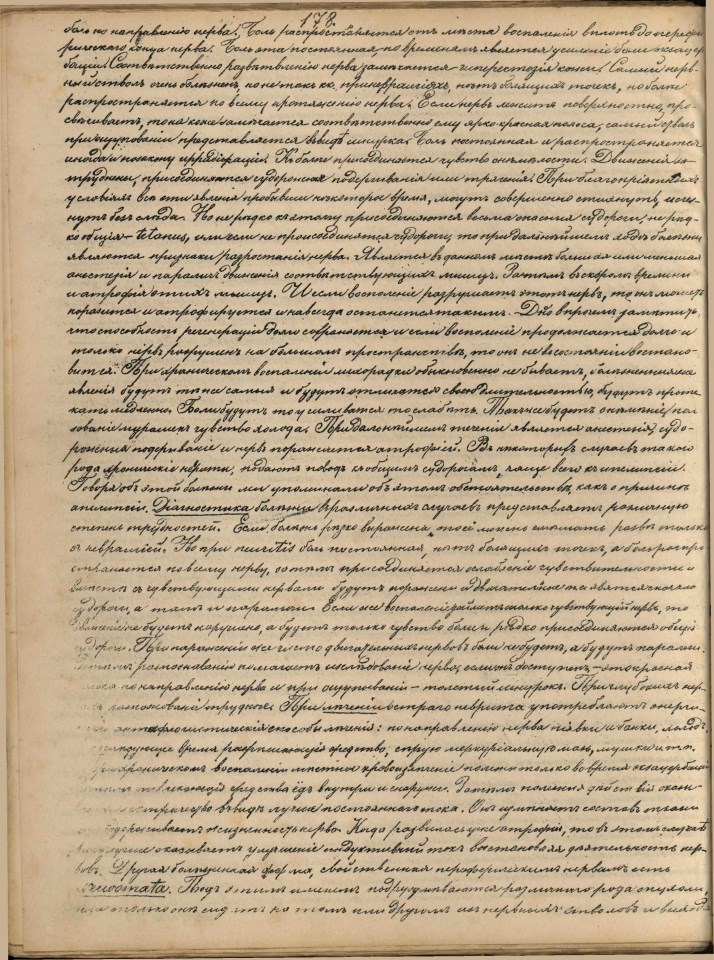 178.
боль по направленію нерва. Боль распространяется отъ мѣста воспаленія вплоть до перифе
рическаго конца нерва. Боль эта постоянная, по временамъ является усиленіе боли экзацер
бація. Соотвѣтственно развѣтвленію нерва замѣчается гиперестезія кожи. Самый нерв
ный стволъ очень болѣзненъ, но не такъ какъ при невралгіяхъ, нѣтъ болящихъ точекъ, но боль
распространяется по всему протяженію нерва. Если нервъ лежитъ поверхностно, про
свѣчиваетъ, то на кожѣ замѣчается соотвѣтственно ему ярко-красная полоса, самый нервъ
при ощупываніи представляется въ видѣ шнурка. Боль постоянная и распространяется
иногда и по закону иррадіаціи. Къ боли присоединяется чувство онѣмѣлости. Движенія за
труднены, присоединяются судорожныя подергиванія или трясенія. При благопріятныхъ
условіяхъ всѣ эти явленія пробывши нѣкоторое время, могутъ совершенно стихнуть, исчез
нуть безъ слѣда. Но не рѣдко къ этому присоединяются весьма опасныя судороги, не рѣд
ко общія - tetanus, или если не присоединятся судороги, то при дальнѣйшемъ ходѣ болѣзни
являются признаки разростанія нерва. Является въ данномъ мѣстѣ большая или меньшая
анестезія и параличъ движенія соотвѣтствующихъ мышцъ. Затѣмъ въ скоромъ времени
и атрофія этихъ мышцъ. И если воспаленіе разрушаетъ этотъ нервъ, то онъ можетъ
и атрофируется и навсегда останется такимъ. - впрочемъ замѣтить,
что способность регенераціи долго сохраняется и если воспаленіе продолжается долго и
только нервъ разрушенъ на большомъ пространствѣ, то онъ не въ состояніи возстано-
виться. При хроническомъ воспаленіи лихорадки обыкновенно не бываетъ, болѣзненныя
явленія будутъ тѣ же самыя и будутъ отличаться своею длительностью, будутъ проте
кать медленно. Боли будутъ то усиливатся то слабѣть. Также будетъ онѣмѣніе, пол
зованіе мурашекъ чувство холода. При дальнѣйшемъ теченіи является анестезія, судо-
рожныя подергиванія и нервъ поражается атрофіей. Въ нѣкоторыхъ случаяхъ такого
рода хроническіе невриты, подаютъ поводъ къ общимъ судорогамъ, чаще всего къ эпилепсіи.
Говоря объ этой болѣзни мы упоминали объ этомъ обстоятельствѣ, какъ о причинѣ
эпилепсіи. Діагностика болѣзни въ различныхъ случаяхъ представляетъ различную
степень трудностей. Если болѣзнь рѣзко выражена, то её можно смѣшать развѣ только
съ невралгіей. Но при neuritis боль постоянная, нѣтъ болящихъ точекъ, а боль распро
страняется по всему нерву, затѣмъ присоединяется ослабленіе чувствительности и
вмѣстѣ съ чувствующими нервами будутъ поражены и двигательные т.е. явятся сначала
судороги, а тамъ и параличи. Если же воспаленіе займетъ только чувствующій нервъ, то
движеніе не будетъ нарушено, а будетъ только чувство боли и рѣдко присоединяются общія
судороги. При пораженіи же чисто двигательныхъ нервовъ боли не будетъ, а будутъ параличи.
Затѣмъ распознаванію помогаетъ изслѣдованіе нерва, если онъ доступенъ - это красная
полоса по направленію нерва и при ощупываніи - толстый шнурокъ. При глубокихъ нер
вахъ распознаваніе труднѣе. При лѣченіи остраго неврита употребляютъ энерги-
антифлогистическія способы лѣченія: по направленію нерва піявки и банки, холодъ
время разрѣшающія средства, сѣрую меркуріальную мазь, мушки и т.п.
При хроническомъ воспаленіи мѣстное кровоизвлеченіе полезно только во время экзацербаціи
средства іодъ внутри и снаружи. Затѣмъ полезныя дѣйствія оказ-
электричество въ видѣ лучше постояннаго тока. Онъ измѣняетъ составъ ткани
жизненность нерва. Когда развилась уже атрофія, то въ этомъ случаѣ
оказываетъ улучшеніе индуктивный токъ возстановляя дѣятельность нер-
вовъ. Другая болѣзненная форма, свойственная периферическимъ нервамъ есть
Подъ этимъ именемъ подразумѣваются различнаго рода опухоли,
только онѣ сидятъ на томъ или другомъ изъ нервныхъ стволовъ и